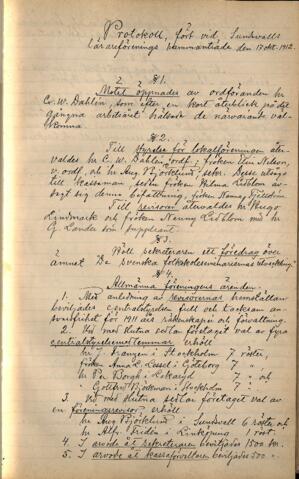 Protokoll, fört vid Sundsvalls
lärareförenings sammanträde den 17 okt. 1912.
§ 1.
Mötet öppnades av ordföranden hr
C. W. Dahlin, som efter en kort återblick på det
gångna arbetsåret hälsade de närvarande väl-
komna.
§ 2.
Till styrelse för lokalföreningen åter-
valdes hr C. W. Dahlin, ordf., fröken Elin Nelson,
v. ordf. och hr Aug. Björklund, sekr. Dessutom
till kassaman, sedan fröken Selma Lidblom av-
sagt sig denna befattning, fröken
Till revisorer återvaldes hr Hugo
Lindmark och fröken Nanny Lidblom med hr
G. Lander som suppleant.
§ 3.
Höll sekreteraren ett föredrag över
ämnet "De svenska folkskoleseminariernas utveckling."
§ 4.
Allmänna föreningens ärenden.
1. Med anledning av revisorernas hemställan
beviljades centralstyrelsen full och tacksam an-
svarsfrihet för 1911 års räkenskaper och förvaltning.
2. Vid med slutna sedlar företaget val av fyra
centralstyrelsemedlemmar erhöll:
hr J. Franzén i Stockholm 7 röster,
fröken Anna L. Lossel i Göteborg 7 "
hr Per Borgh i 7 " och
" Gottfrid Björkman i Stockholm 7 "
3. Vid med slutna sedlar företaget val av
en föreningsrevisor erhöll:
hr Aug. Björklund, Sundsvall 6 röster och
hr Alfr. Fridén i Linköping 1 röst.
4. I arvode åt sekreteraren beviljades 1500 kr.
5. I arvode åt kassaförvaltaren beviljades 500 "